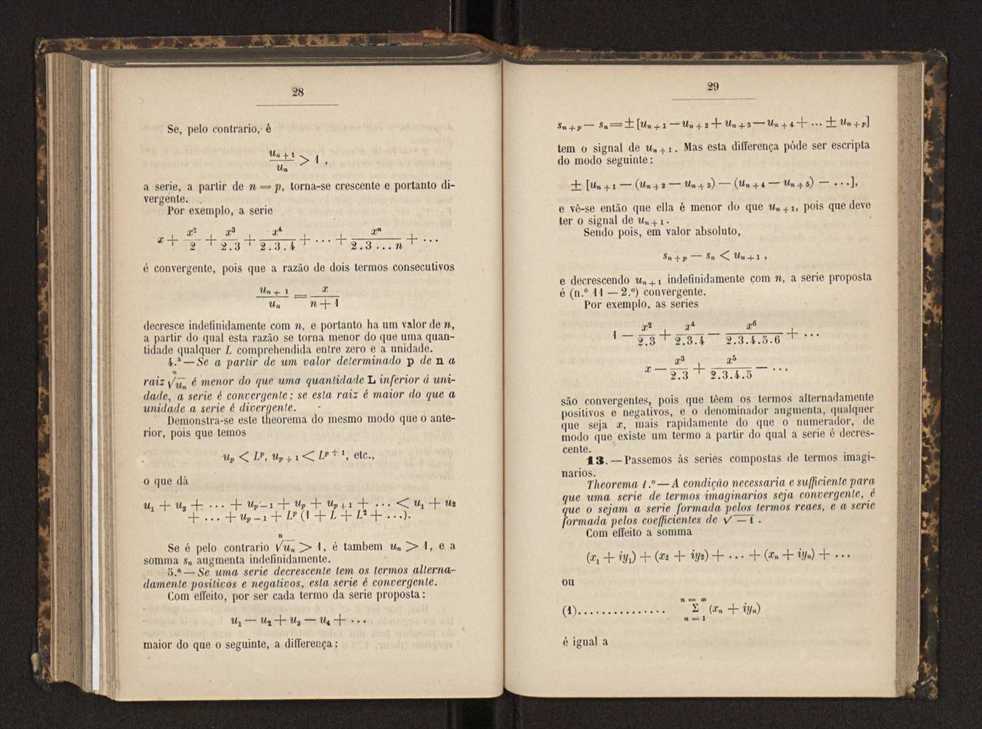 28
Se, pelo contrario, é
u_{n+1}/u_n > 1 ,
a serie, a partir de n = p, torna-se crescente e portanto di-
vergente.
Por exemplo, a serie
x + x²/2 + x³/2.3 + x⁴/2.3.4 + ... + xⁿ/2.3...n + ...
é convergente, pois que a razão de dois termos consecutivos
u_{n+1}/u_n = x/n+1
decresce indefinidamente com n, e portanto ha um valor de n,
a partir do qual esta razão se torna menor do que uma quan-
tidade qualquer L comprehendida entre zero e a unidade.
4.ª — Se a partir de um valor determinado p de n a
raiz ⁿ√u_n é menor do que uma quantidade L inferior á uni-
dade, a serie é convergente; se esta raiz é maior do que a
unidade a serie é divergente.
Demonstra-se este theorema do mesmo modo que o ante-
rior, pois que temos
u_p < L^p, u_{p+1} < L^{p+1}, etc.,
o que dá
u₁ + u₂ + ... + u_{p-1} + u_p + u_{p+1} + ... < u₁ + u₂
+ ... + u_{p-1} + L^p (1 + L + L² + ...).
Se é pelo contrario ⁿ√u_n > 1, é tambem u_n > 1, e a
somma s_n augmenta indefinidamente.
5.ª — Se uma serie decrescente tem os termos alterna-
damente positivos e negativos, esta serie é convergente.
Com effeito, por ser cada termo da serie proposta:
u₁ — u₂ + u₃ — u₄ + ...
maior do que o seguinte, a differença:
29
s_{n+p} — s_n = ± [u_{n+1} — u_{n+2} + u_{n+3} — u_{n+4} + ... ± u_{n+p}]
tem o signal de u_{n+1}. Mas esta differença póde ser escripta
do modo seguinte:
± [u_{n+1} — (u_{n+2} — u_{n+3}) — (u_{n+4} — u_{n+5}) — ...],
e vê-se então que ella é menor do que u_{n+1}, pois que deve
ter o signal de u_{n+1}.
Sendo pois, em valor absoluto,
s_{n+p} — s_n < u_{n+1} ,
e decrescendo u_{n+1} indefinidamente com n, a serie proposta
é (n.º 11 — 2.º) convergente.
Por exemplo, as series
1 — x²/2.3 + x⁴/2.3.4 — x⁶/2.3.4.5.6 + ...
x — x³/2.3 + x⁵/2.3.4.5 — ...
são convergentes, pois que têem os termos alternadamente
positivos e negativos, e o denominador augmenta, qualquer
que seja x, mais rapidamente do que o numerador, de
modo que existe um termo a partir do qual a serie é decres-
cente.
13. — Passemos às series compostas de termos imagi-
narios.
Theorema 1.º — A condição necessaria e sufficiente para
que uma serie de termos imaginarios seja convergente, é
que o sejam a serie formada pelos termos reaes, e a serie
formada pelos coefficientes de √—1 .
Com effeito a somma
(x₁ + iy₁) + (x₂ + iy₂) + ... + (x_n + iy_n) + ...
ou
(1).............. Σ_{n=1}^{n=∞} (x_n + iy_n)
é igual a